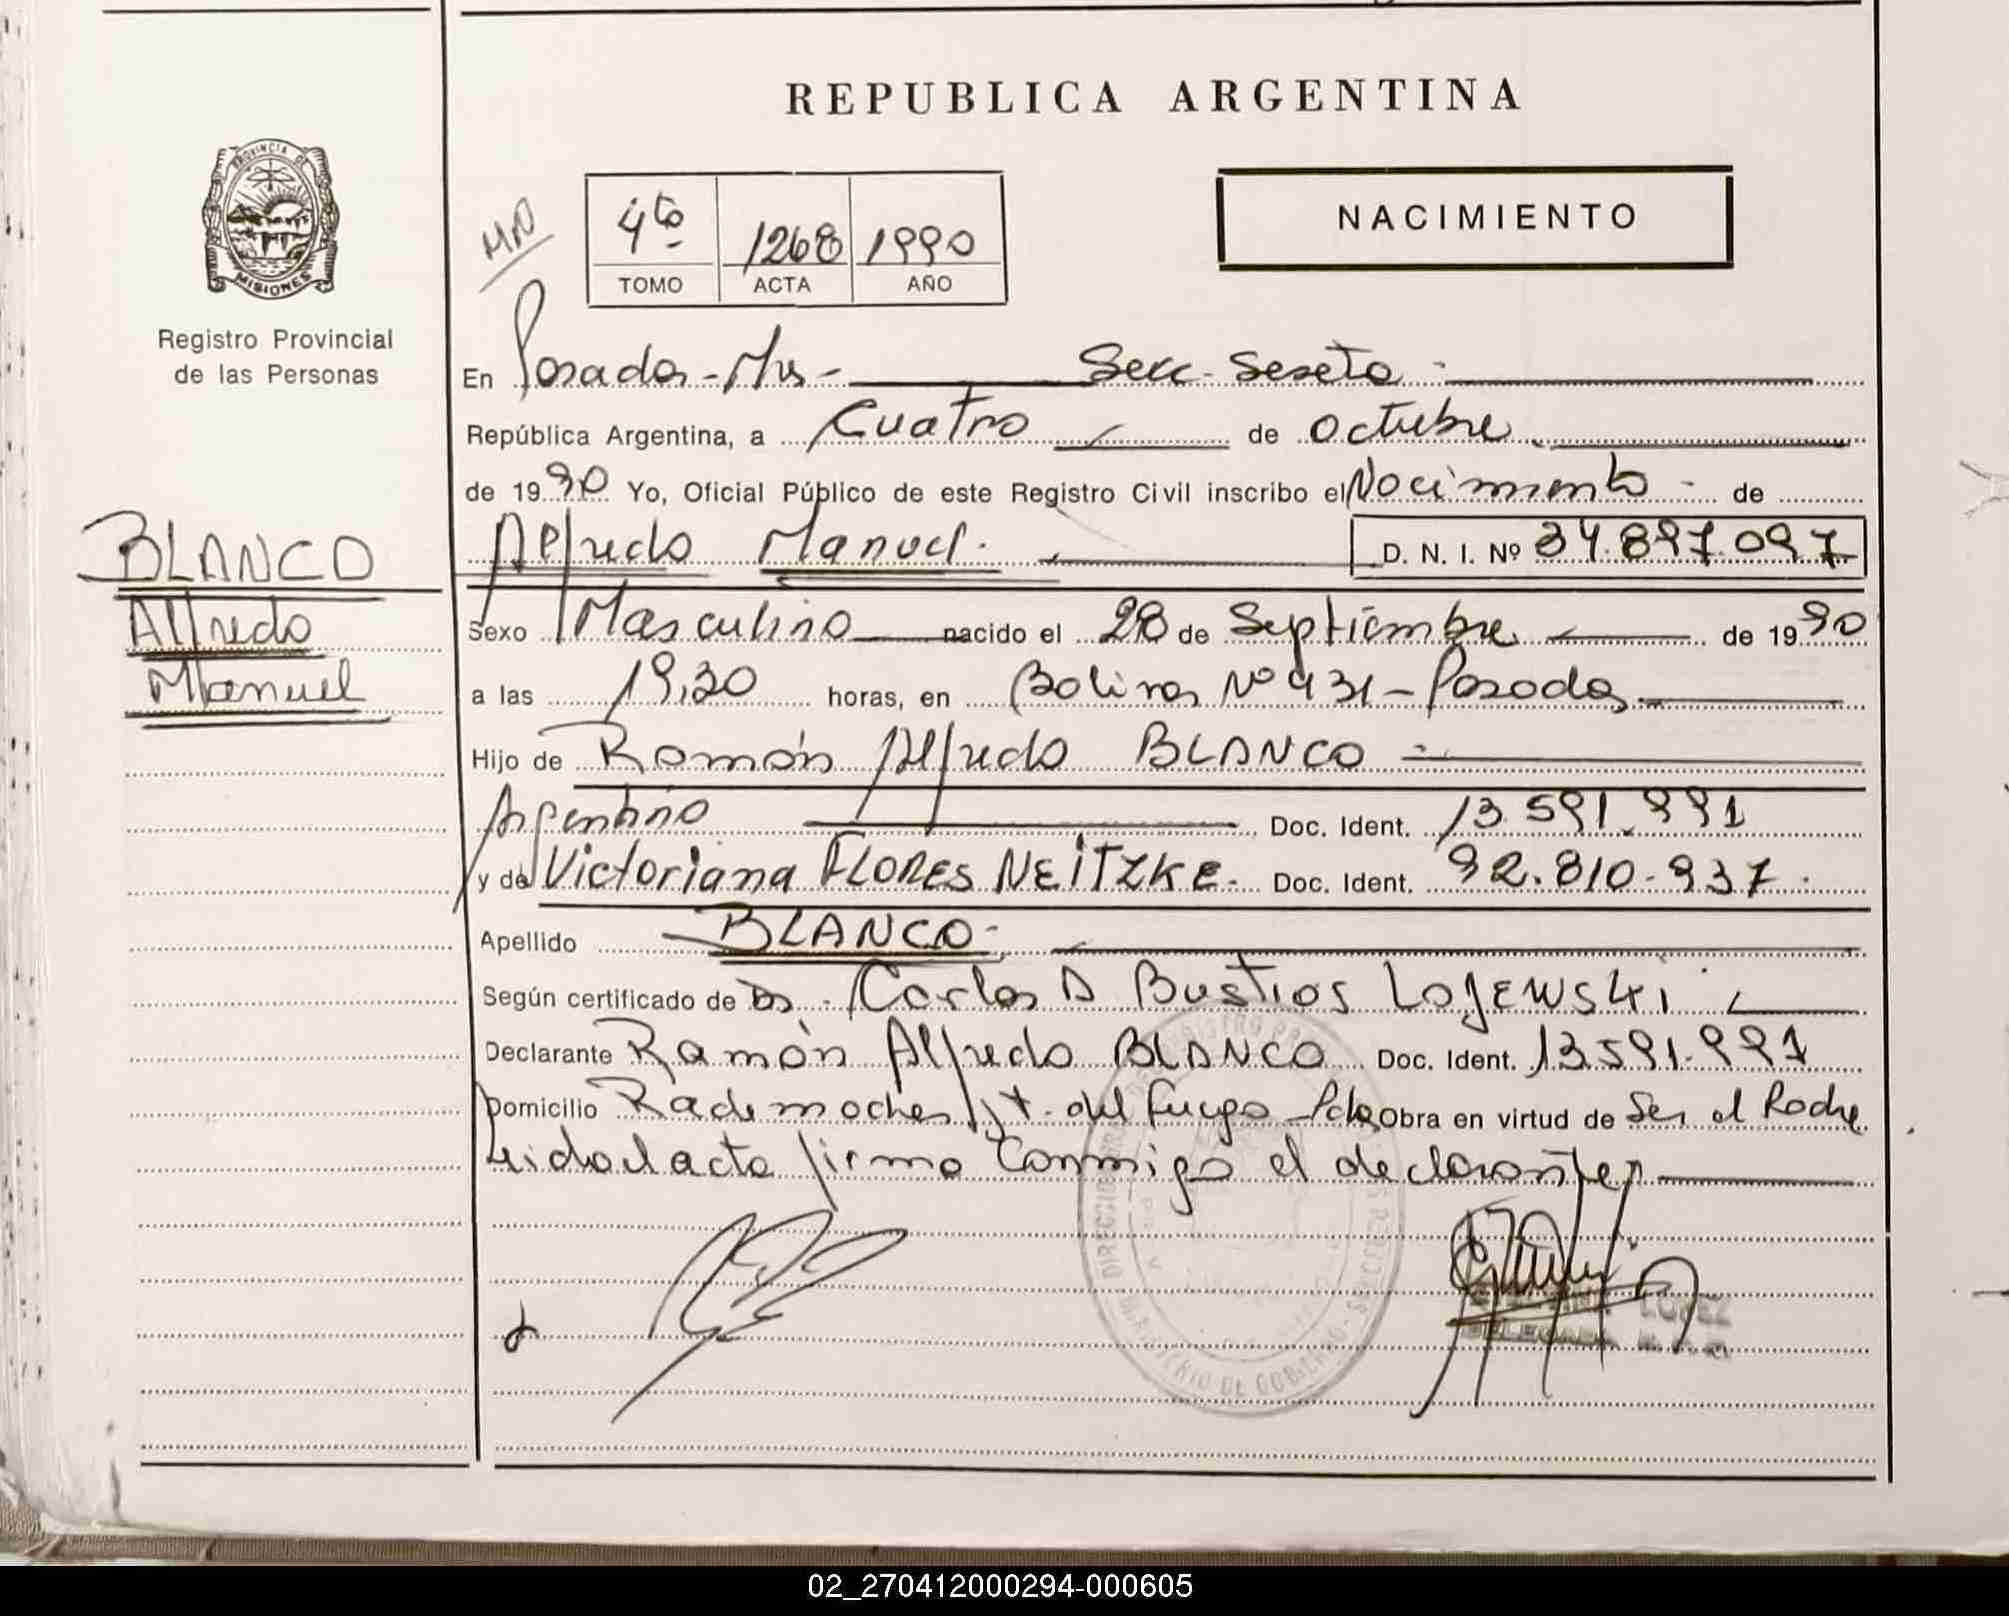 REPUBLICA ARGENTINA
PROVINCIA DE
MISIONES
Registro Provincial
de las Personas
4to 1268 1990
TOMO ACTA AÑO
NACIMIENTO
En Posadas - Mns - Secc. Sexta -
República Argentina, a Cuatro de Octubre
de 1990 Yo, Oficial Público de este Registro Civil inscribo el Nacimiento - de
BLANCO
Alfredo
Manuel
Alfredo Manuel. D. N. I. Nº 34.897.097
Sexo Masculino nacido el 28 de Septiembre de 1990
a las 19,30 horas, en Bolivar Nº 431 - Posadas
Hijo de Ramón Alfredo BLANCO -
Argentino Doc. Ident. 13.591.991
y de Victoriana FLORES NEITZKE. Doc. Ident. 92.810.937.
Apellido BLANCO -
Según certificado de Carlos A Bustios LOJEWSKI
Declarante Ramón Alfredo BLANCO Doc. Ident. 13.591.991
Domicilio del fuego Obra en virtud de Ser el Padre
Leida el acta firma Conmigo el declarante
LOPEZ
02_270412000294-000605